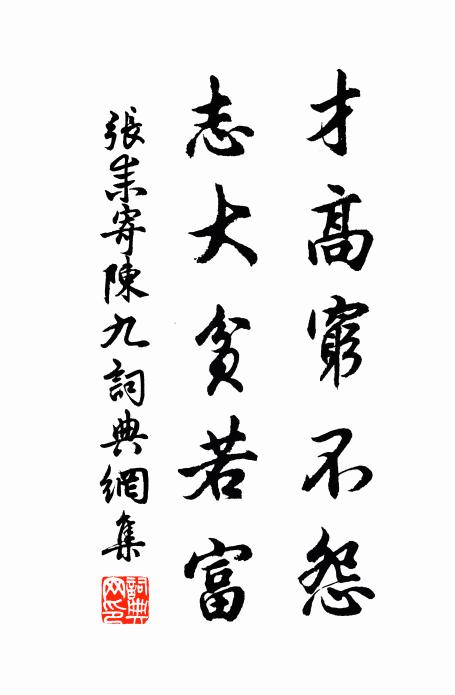 才高窮不怨
志大貧若富
張耒寄陳九詞典網集
詞典網印